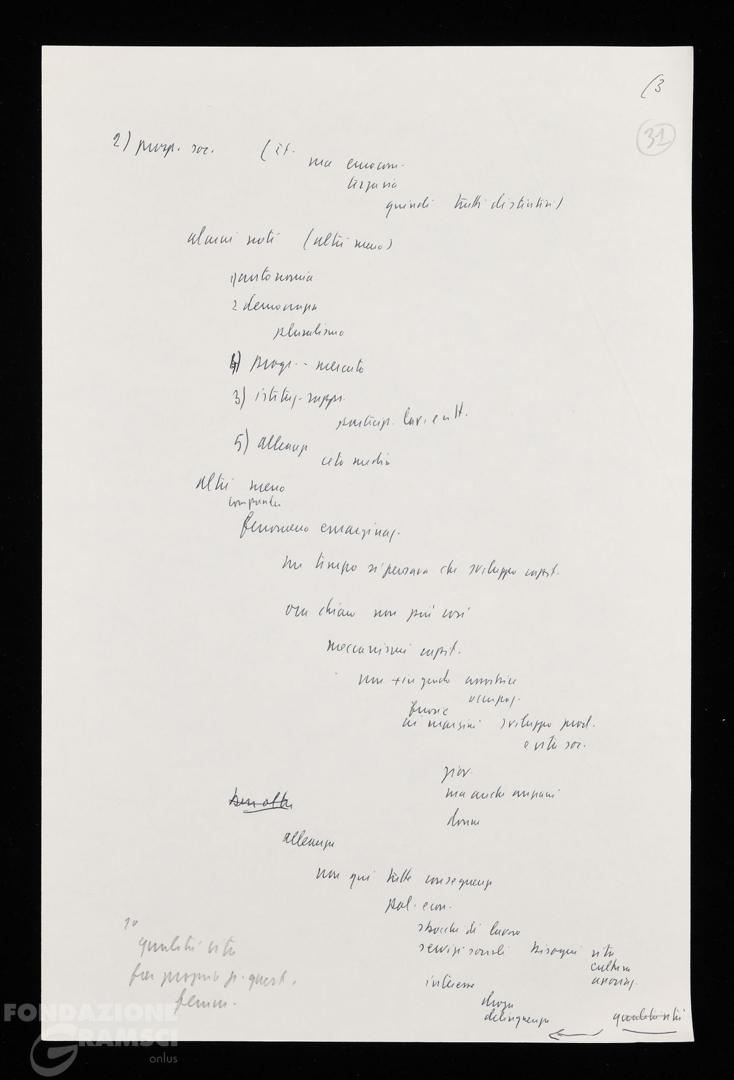 (3
31
2) prosp. soc. (it.
ma eurocom.
terza via
quindi tutti distintivi)
alcuni noti (altri meno)
1) autonomia
2 democrazia
pluralismo
4) progr. - mercato
3) istituz. rappr.
particip. lav. e citt.
5) alleanza
ceto medio
altri meno
fenomeno emarginaz.
un tempo si pensava che sviluppo capit.
ora chiaro non più così
meccanismi capit.
non + in grado
occupaz.
fuori e
ai margini sviluppo prod.
e vita soc.
giov.
ma anche anziani
donne
alleanza
non qui tutte conseguenze
pol. econ.
sbocchi di lavoro
servizi sociali bisogni vita
cultura
interesse
droga
delinquenza
qualità vita
qualità vita
far propria più quest.
femm.
FONDAZIONE
GRAMSCI
onlus